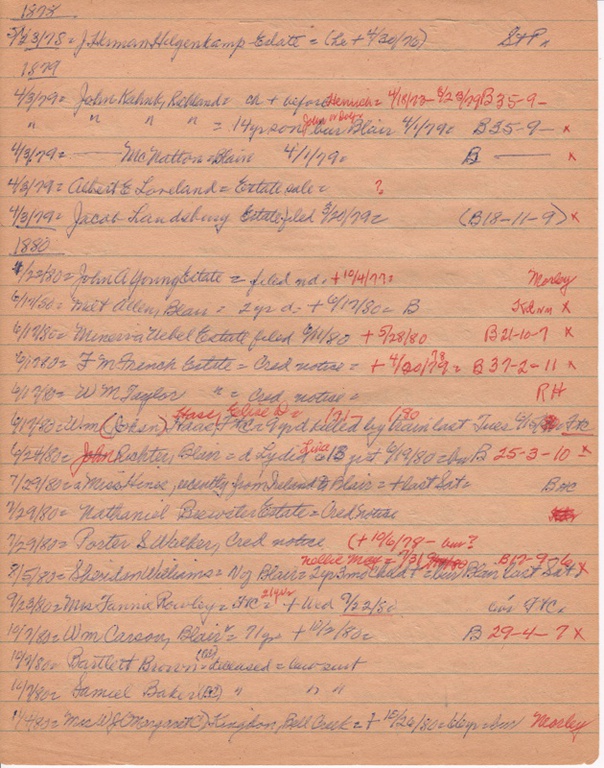 1878
3/23/78 = J. Herman Hilgenkamp Estate = (he + 4/30/76) St P.
1879
4/3/79 = John Kahnk, Richland = ch + before Heinrich = 4/18/73 - B35-9-
" " " " = 14 yr son John bur Blair 4/1/79 = B35-9- x
4/3/79 = Mc Natton = Blair 4/1/79 = B x
4/3/79 = Albert E Loveland = Estate sale = ?
4/3/79 = Jacob Landsburg Estate filed 3/20/79 = (B18-11-9) x
1880
4/22/80 = John A Young Estate = filed nd. = + 10/4/77 = Morley
6/17/80 = Allen, Blair = 2 yr d. = + 6/17/80 = B x
6/17/80 = Minerva Uebel Estate filed 6/11/80 + 5/28/80 B21-10-7 x
6/17/80 = F M French Estate = Cred notice = + 4/20/79 = B37-2-11 x
6/17/80 = W M Taylor " = Cred notice = RH
6/17/80 = Wm Haas, FtC = 9 yr d killed by train last Tues FtC
6/24/80 = John Richter, Blair = d Lydia 6/19/80 = bur B 25-3-10 = x
7/29/80 = Miss Hines, recently from Ireland to Blair = + last Sat =
7/29/80 = Nathaniel Brewster Estate = Cred notice
7/29/80 = Porter S Walker, Cred notice (+ 10/6/78 - bur?
8/5/80 = Sheridan Williams = N of Blair = 2 yr 3 mo child + = bur Blair last Sat Nellie May = 7/31 B17-9-6 x
9/23/80 = Miss Fannie Rowley = FtC = 21 yr + Wed 9/22/80 FtC.
10/7/80 = Wm Carson, Blair = 71 yr + 10/2/80 = B 29-4-7 x
10/7/80 = Bartlett Brown = deceased = law suit
10/7/80 = Samuel Baker " " "
11/4/80 = Mrs W J (Margaret C) Kingdon, Bell Creek = + 10/26/80 = Morley